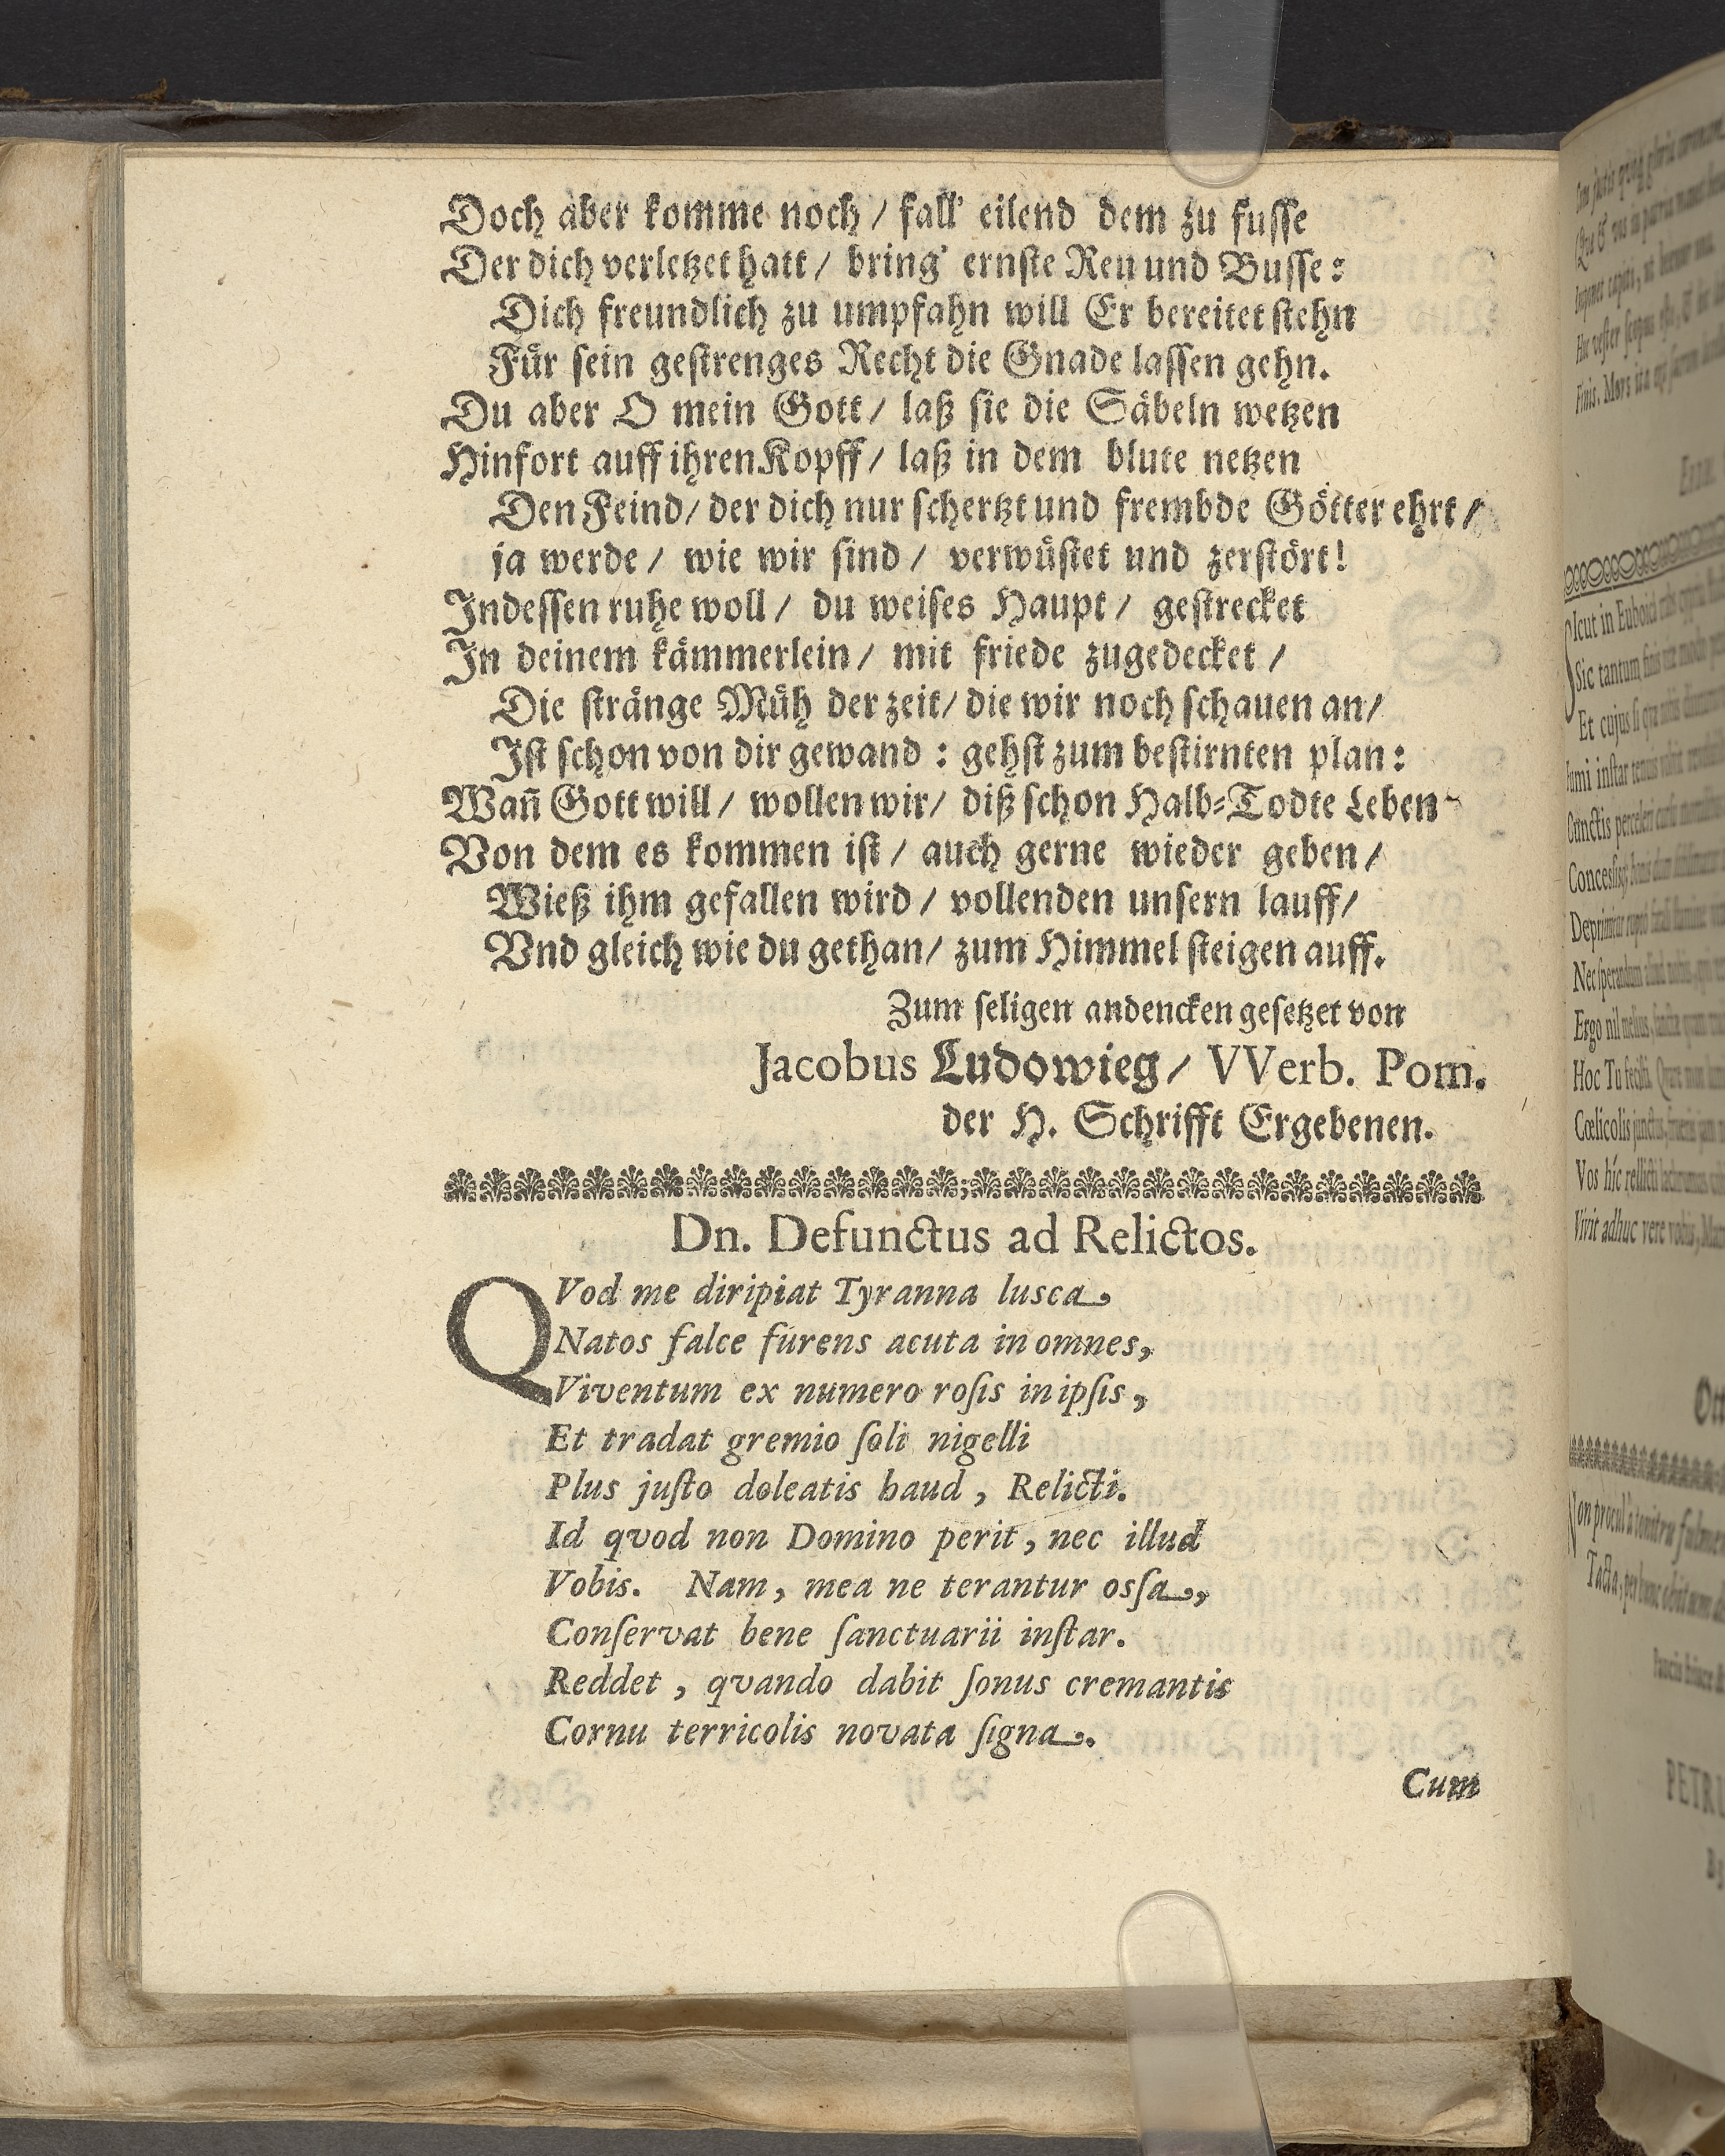 Doch aber komme noch / fall' eilend dem zu fusse
Der dich verletzet hatt / bring' ernste Reu und Busse:
Dich freundlich zu umpfahn will Er bereitet stehn
Für sein gestrenges Recht die Gnade lassen gehn.
Du aber O mein Gott / laß sie die Säbeln wetzen
Hinfort auff ihren Kopff / laß in dem blute netzen
Den Feind / der dich nur schertzt und frembde Götter ehrt /
ja werde / wie wir sind / verwüstet und zerstört!
Indessen ruhe woll / du weises Haupt / gestrecket
In deinem kämmerlein / mit friede zugedecket /
Die stränge Müh der zeit / die wir noch schauen an /
Ist schon von dir gewand : gehst zum bestirnten plan:
Wañ Gott will / wollen wir / diß schon Halb-Todte Leben
Von dem es kommen ist / auch gerne wieder geben /
Wieß ihm gefallen wird / vollenden unsern lauff /
Vnd gleich wie du gethan / zum Himmel steigen auff.
Zum seligen andencken gesetzet von
Jacobus Ludowieg / VVerb. Pom.
der H. Schrifft Ergebenen.
Dn. Defunctus ad Relictos.
QVod me diripiat Tyranna lusca,
Natos falce furens acuta in omnes,
Viventum ex numero rosis in ipsis,
Et tradat gremio soli nigelli
Plus justo doleatis haud, Relicti.
Id qvod non Domino perit, nec illud
Vobis. Nam, mea ne terantur ossa,
Conservat bene sanctuarii instar.
Reddet, qvando dabit sonus cremantis
Cornu terricolis novata signa.
Cum